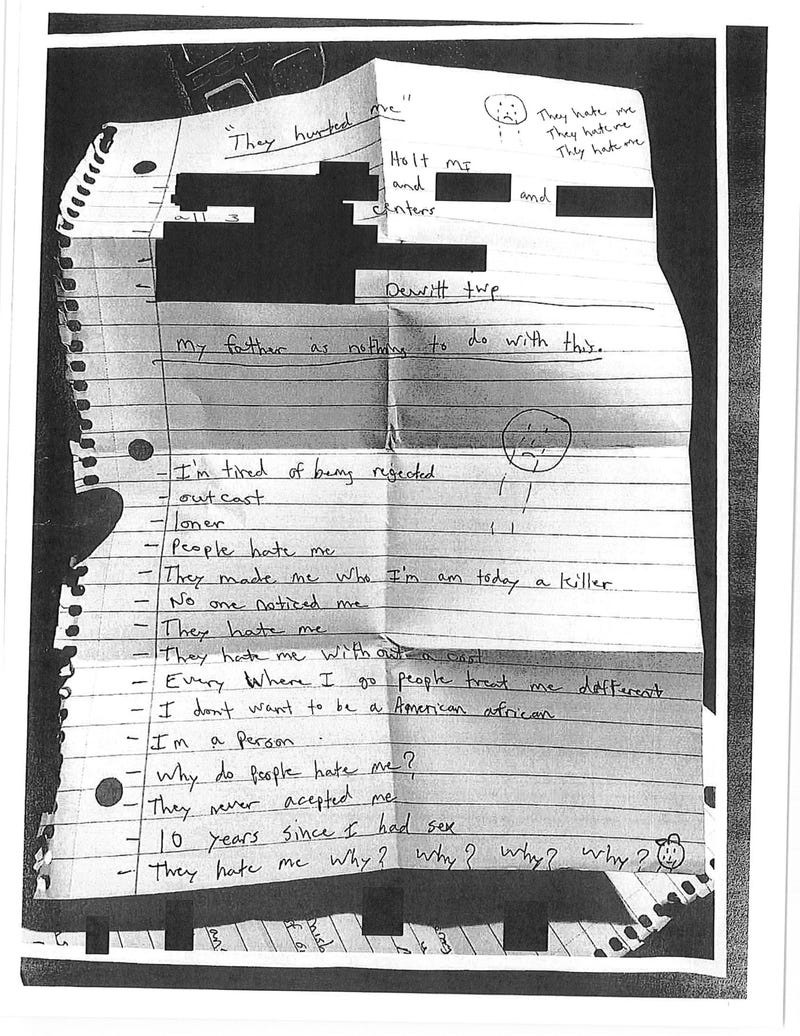 "They hurted me"
They hate me
They hate me
They hate me
Holt MI
and and
all 3 centers
Dewitt twp
My father as nothing to do with this.
- I'm tired of being rejected
- outcast
- loner
- People hate me
- They made me who I'm am today a killer
- No one noticed me
- They hate me
- They hate me without a cost
- Every Where I go people treat me different
- I don't want to be a American african
- I'm a person.
- Why do people hate me?
- They never acepted me
- 10 years since I had sex
- They hate me Why? Why? Why? Why?